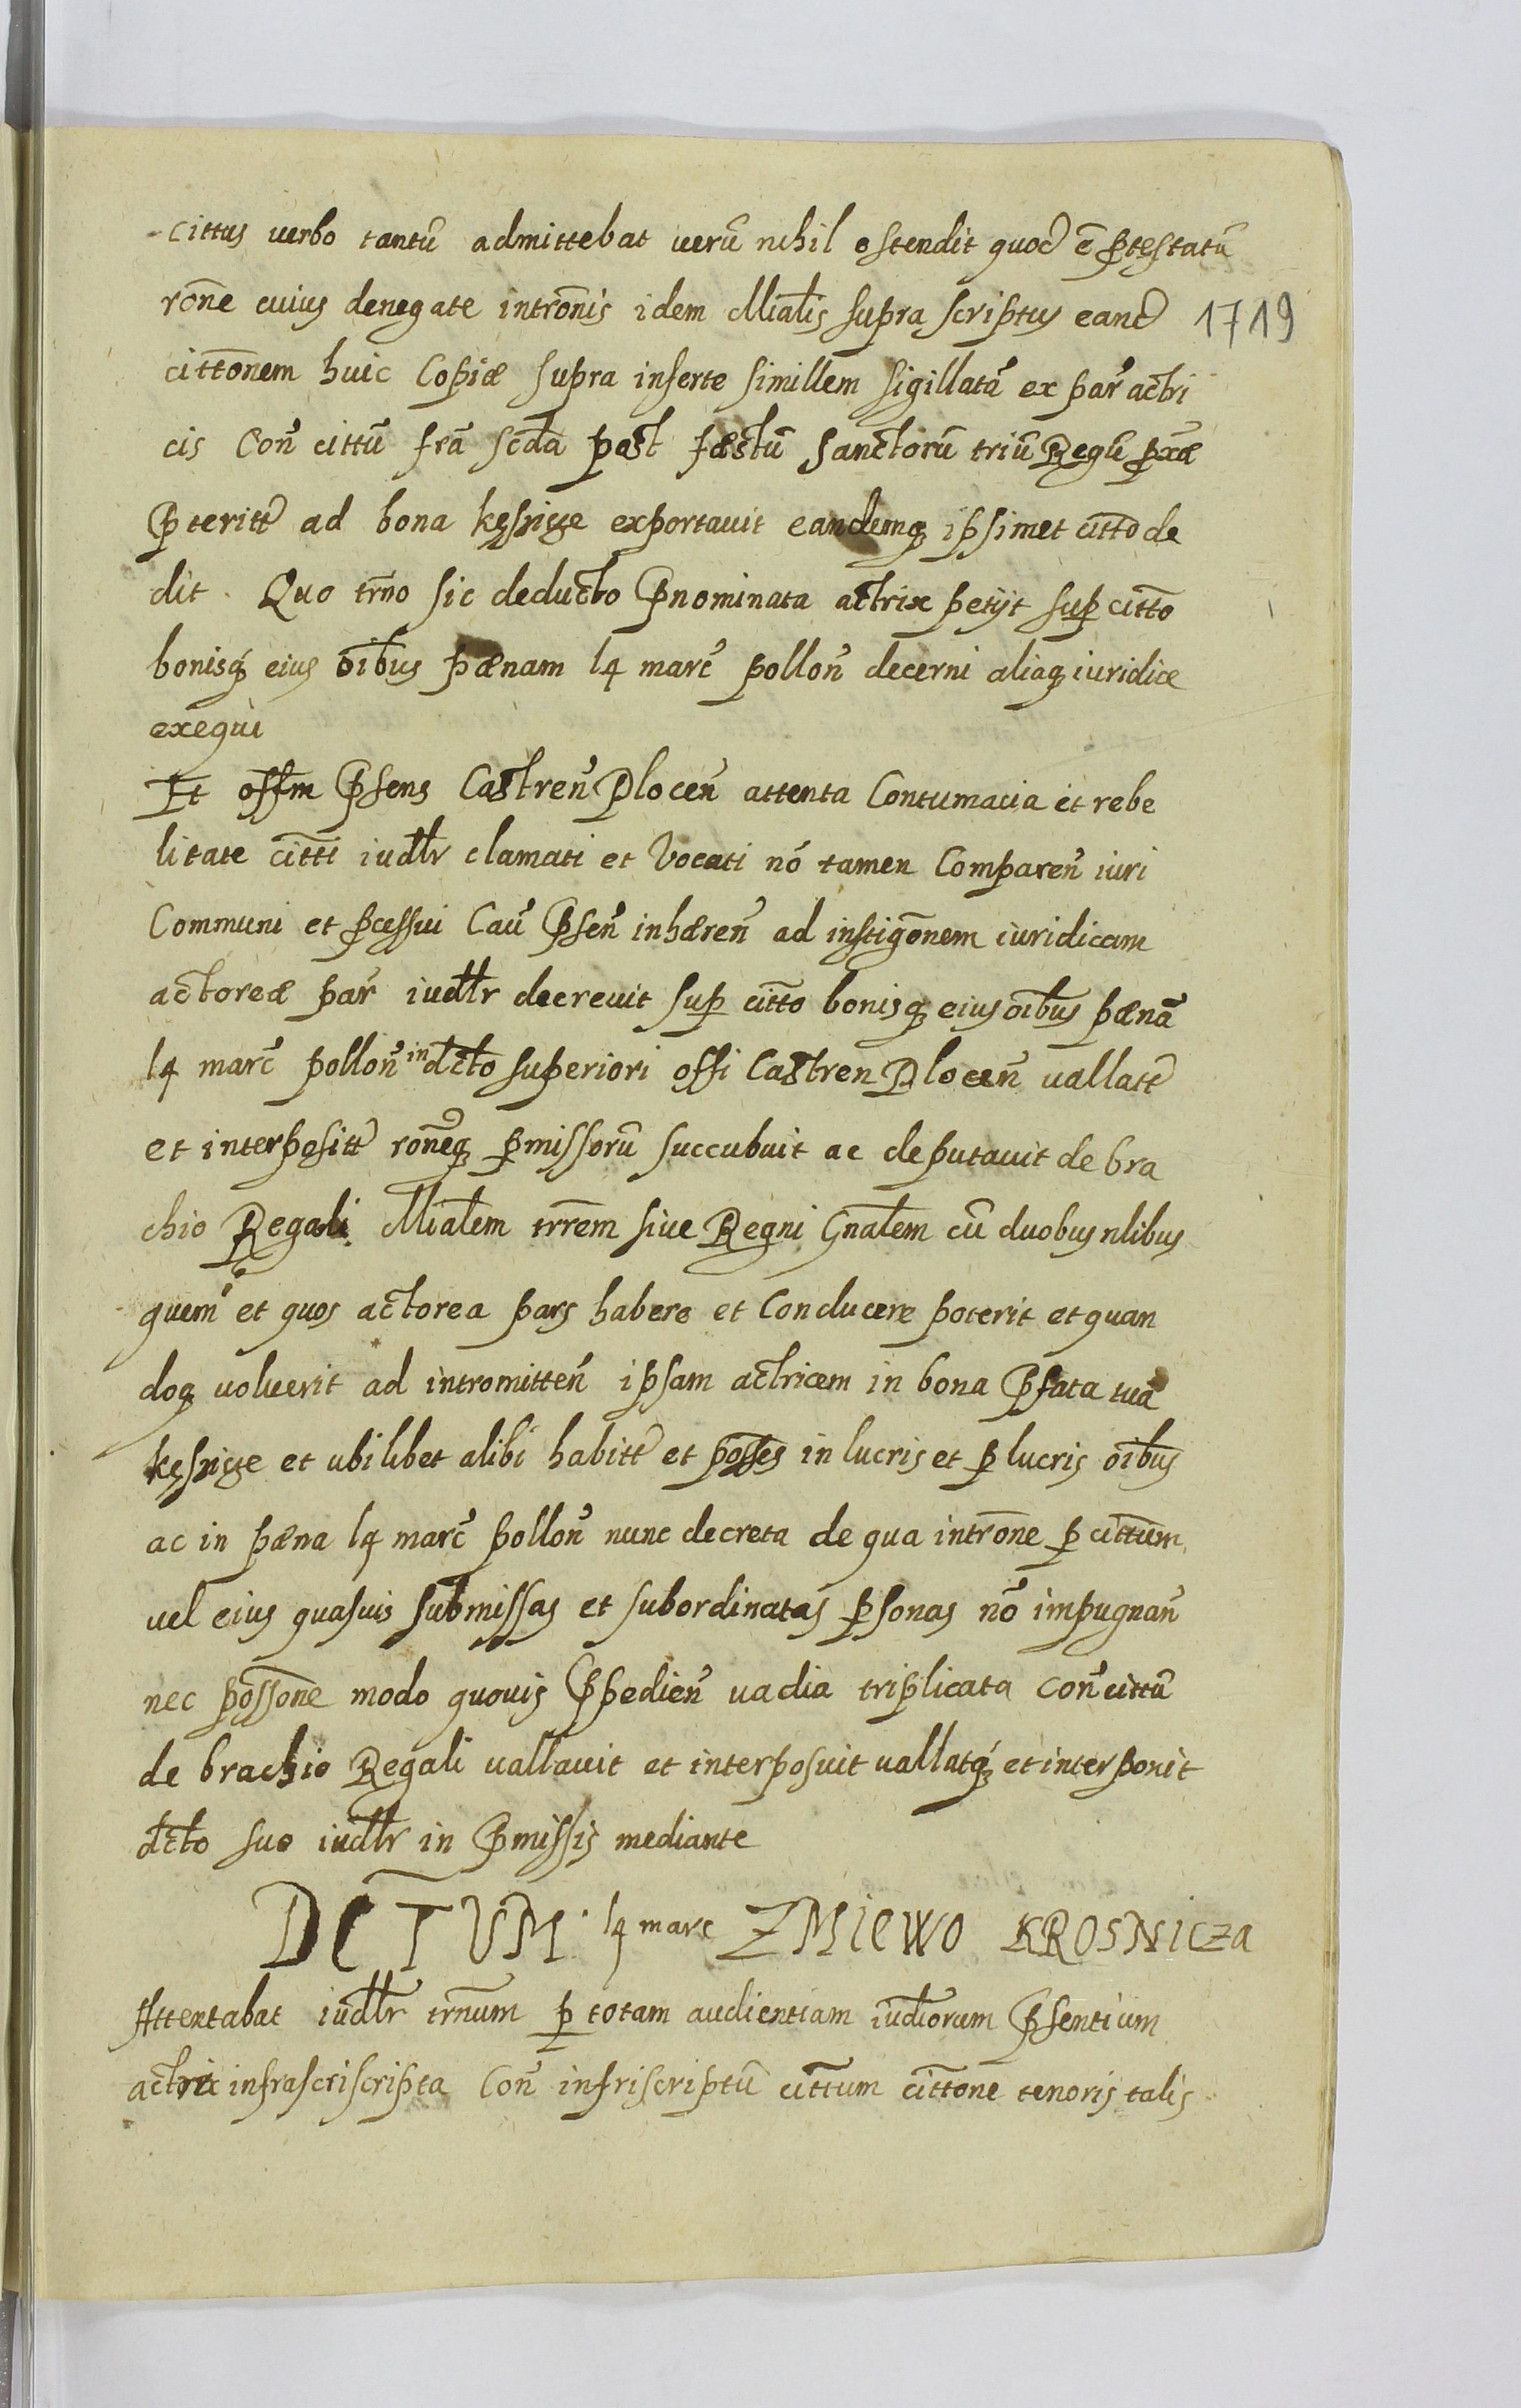 cittus uerbo tantũ admittebat uerũ nihil ostendit quod ẽ ptestatũ
rõne cuius denegate intronĩs idem Mialis supra scriptus eand
1719
cittõnem huic Copiæ supra inserte simillem sigillatã ex par actri
cis Coñ cittũ frã scda post fæstũ Sanctorũ triũ Regũ pxæ
pteritt ad bona kęsnicze exportauit eandemq ipsimet citto de
dit. Quo trño sic deducto pnominata actrix petÿt sup citto
bonisq eius oĩbus pænam 14 marc̃ polloñ decerni aliaq iuridice
exequi
Et offm psens Castreñ Ploceñ attenta Contumacia et rebe
litate citti iudlr clamati et Vocati nõ tamen Compareñ iuri
Communi et pcessui Cau pseñ inhæreñ ad instigõnem iuridicam
actoreæ par iudlr decreuit sup citto bonisq eius oĩbus pænã
14 marc̃ polloñ in dcto superiori offi Castren Ploceñ uallatt
et interpositt roneq pmissorũ succubuit ac deputauit de bra
chio Regali Mialem trrem siue Regni Gnalem cũ duobus nlibus
quem et quos actorea pars habere et Conducere poterit et quan
doq uoluerit ad intromitteñ ipsam actricem in bona pfata tuã
kęsnicze et ubilibet alibi habitt et posses in lucris et p lucris oĩbus
ac in pæna 14 marc̃ polloñ nunc decreta de qua intrõne p cittum
uel eius quasuis submissas et subordinatas psonas nõ impugnañ
nec possone modo quouis ppedieñ uadia triplicata coñ cittũ
de brachio Regali uallauit et interposuit uallatq et interponit
dcto suo iudlr in pmissis mediante
DCTUM 14 marc ZMiewo KROSNicza
Attentabat iudlr trnum p totam audientiam iudiorum psentium
actrix infrascriscripta Coñ infriscriptũ cittum cittone tenoris talis